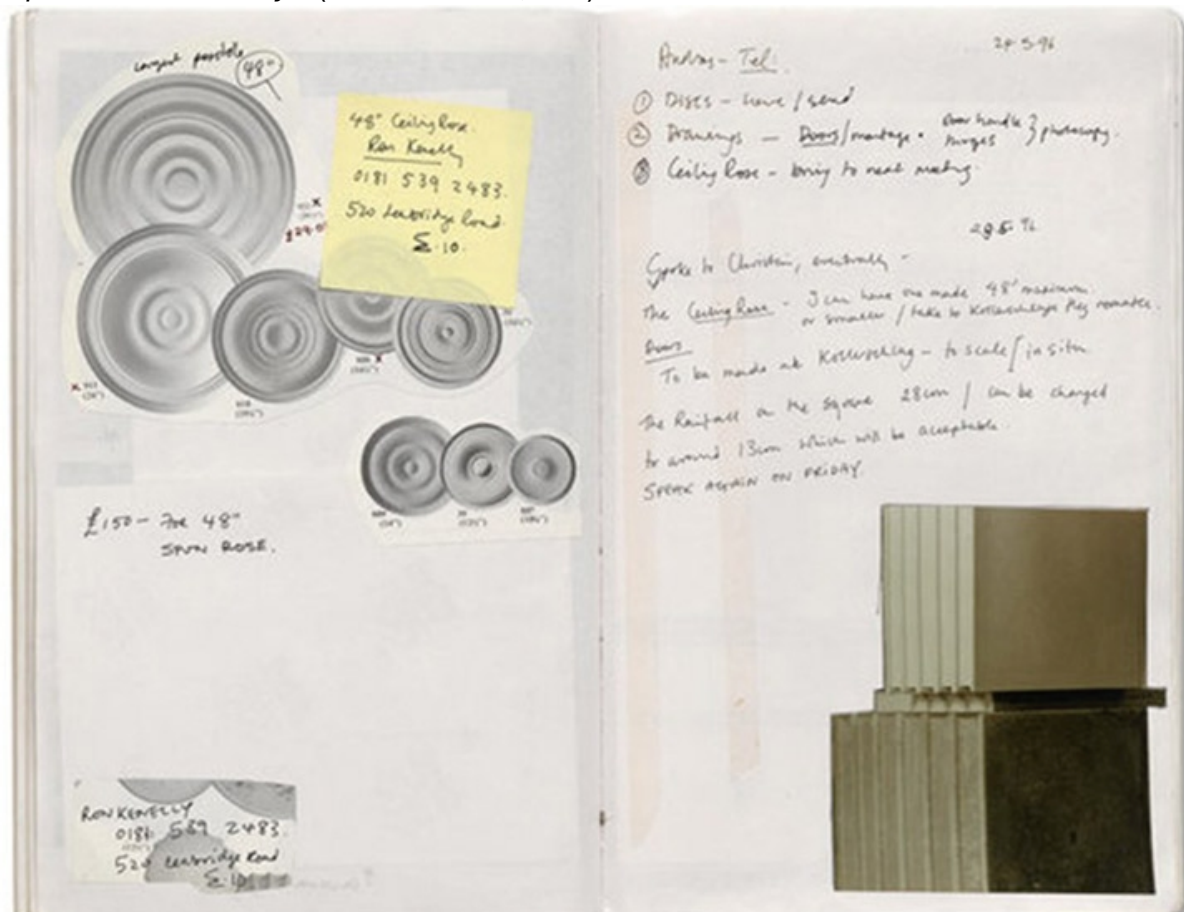 Largest possible
48"
48" Ceiling Rose.
Ron Kenelly
0181 539 2483.
520 Leabridge Road
E.10.
£150 - For 48"
SPUN ROSE.
RON KENELLY
0181 539 2483.
520 Leabridge Road
E.10
24.5.96
Andras - Tel:
① Discs - have / send
② Drawings - Doors / montage. door handle hinges } photocopy.
③ Ceiling Rose - bring to next meeting.
28.5.96
Spoke to Christian, eventually -
The Ceiling Rose - I can have one made 48" maximum.
or smaller / take to Kollerschlag
Doors
To be made at Kollerschlag - to scale / in situ
The Rainfall on the square 28cm / can be changed
to around 13cm which will be acceptable.
SPEAK AGAIN ON FRIDAY.